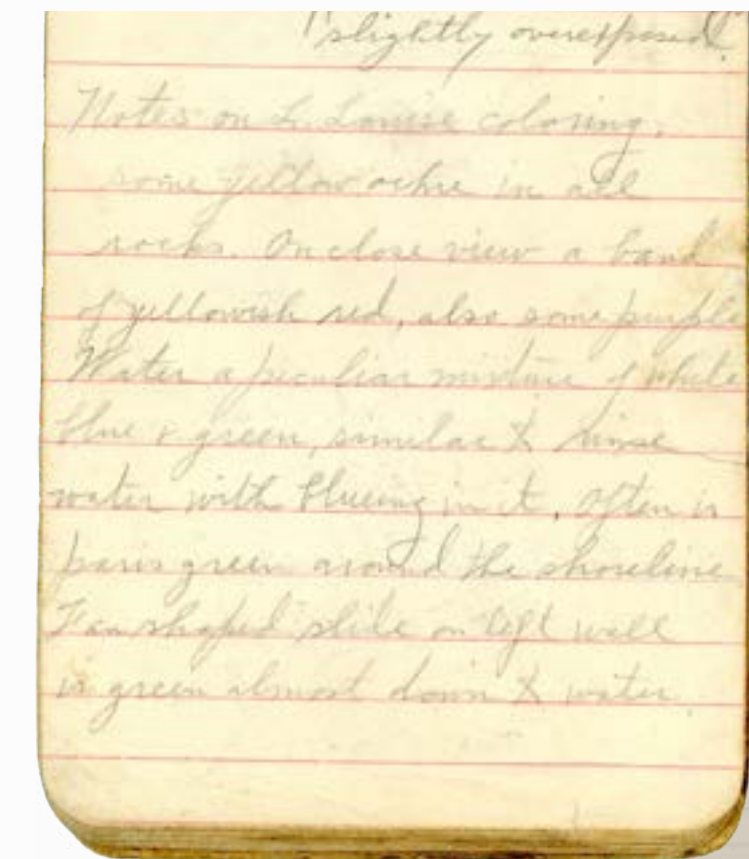 "slightly overexposed."
Notes on L. Louise coloring.
some yellow ochre in all
rocks. On close view a band
of yellowish red, also some purple
Water a peculiar mixture of white
blue & green, similar to rinse
water with blueing in it, often is
paris green around the shoreline
Fan shaped slide on left wall
is green almost down to water.